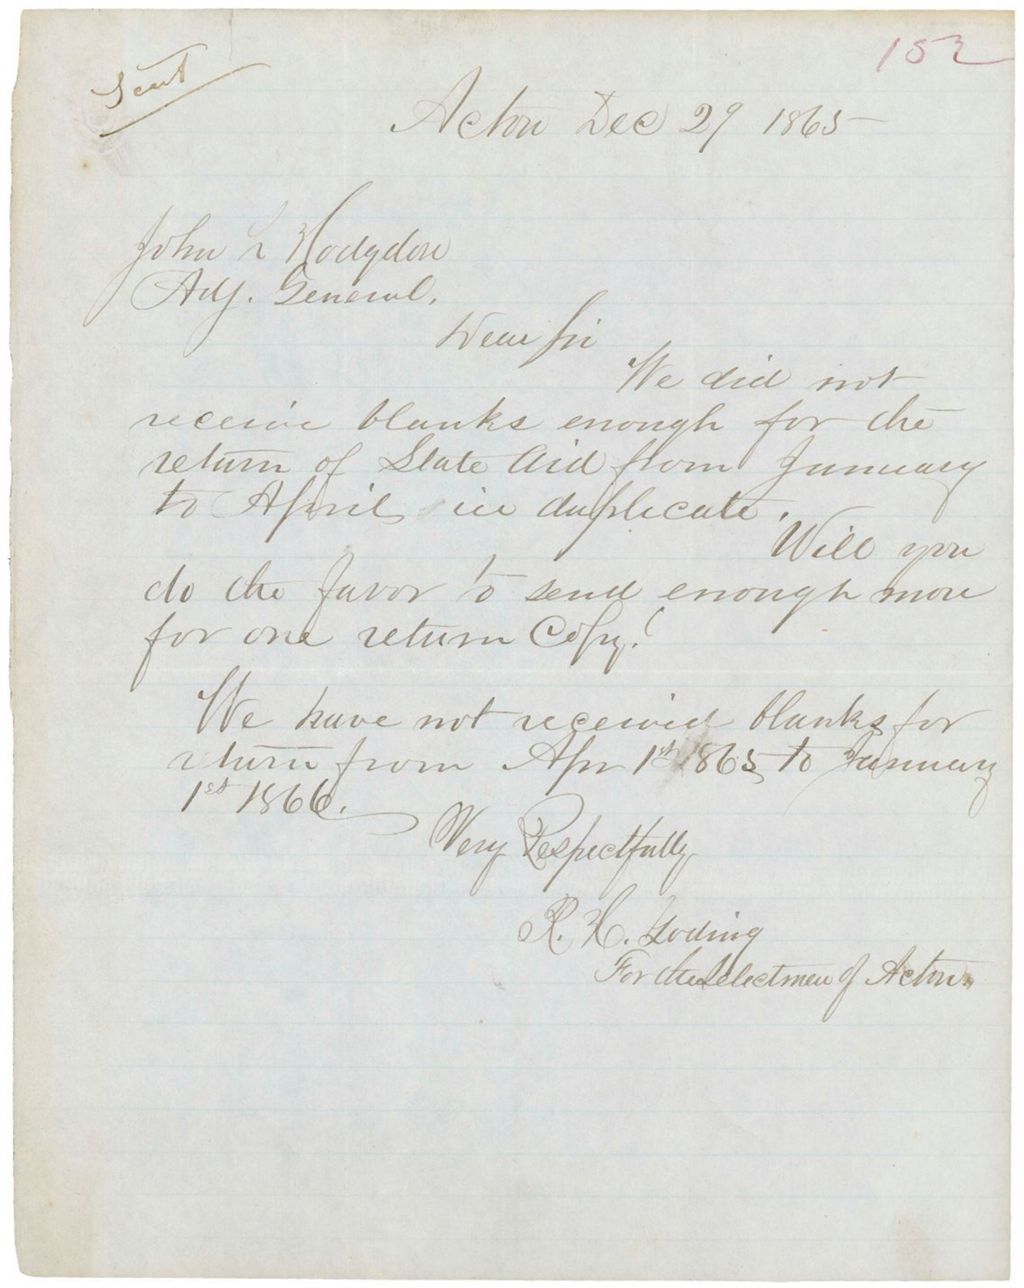 Sent
152
Acton Dec 29 1865
John L Hodgdon
Adj. General.
Dear Sir
We did not
receive blanks enough for the
return of State Aid from January
to April in duplicate.
Will you
do the favor to send enough more
for one return Copy!
We have not received blanks for
return from Apr 1st 1865 to January
1st 1866.
Very Respectfully
R. H. Goding
For the Selectmen of Acton